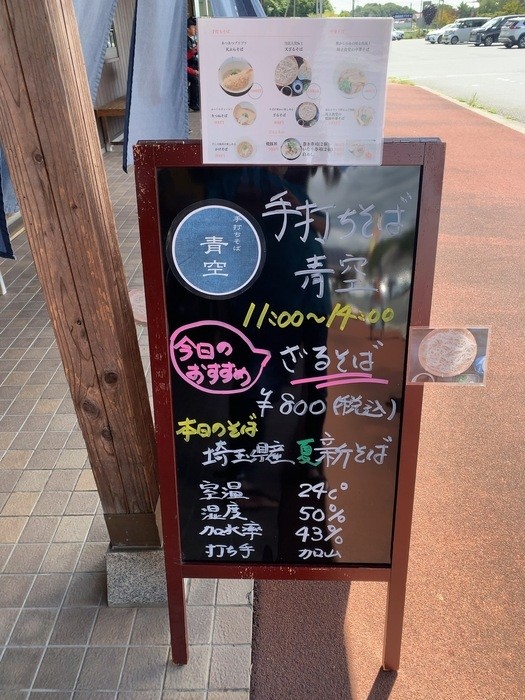 手打ちそば
青空
手打ちそば
青空
11:00〜14:00
今日の
おすすめ
ざるそば
¥800(税込)
本日のそば
埼玉県産 夏新そば
室温 24c°
湿度 50%
加水率 43%
打ち手 加山